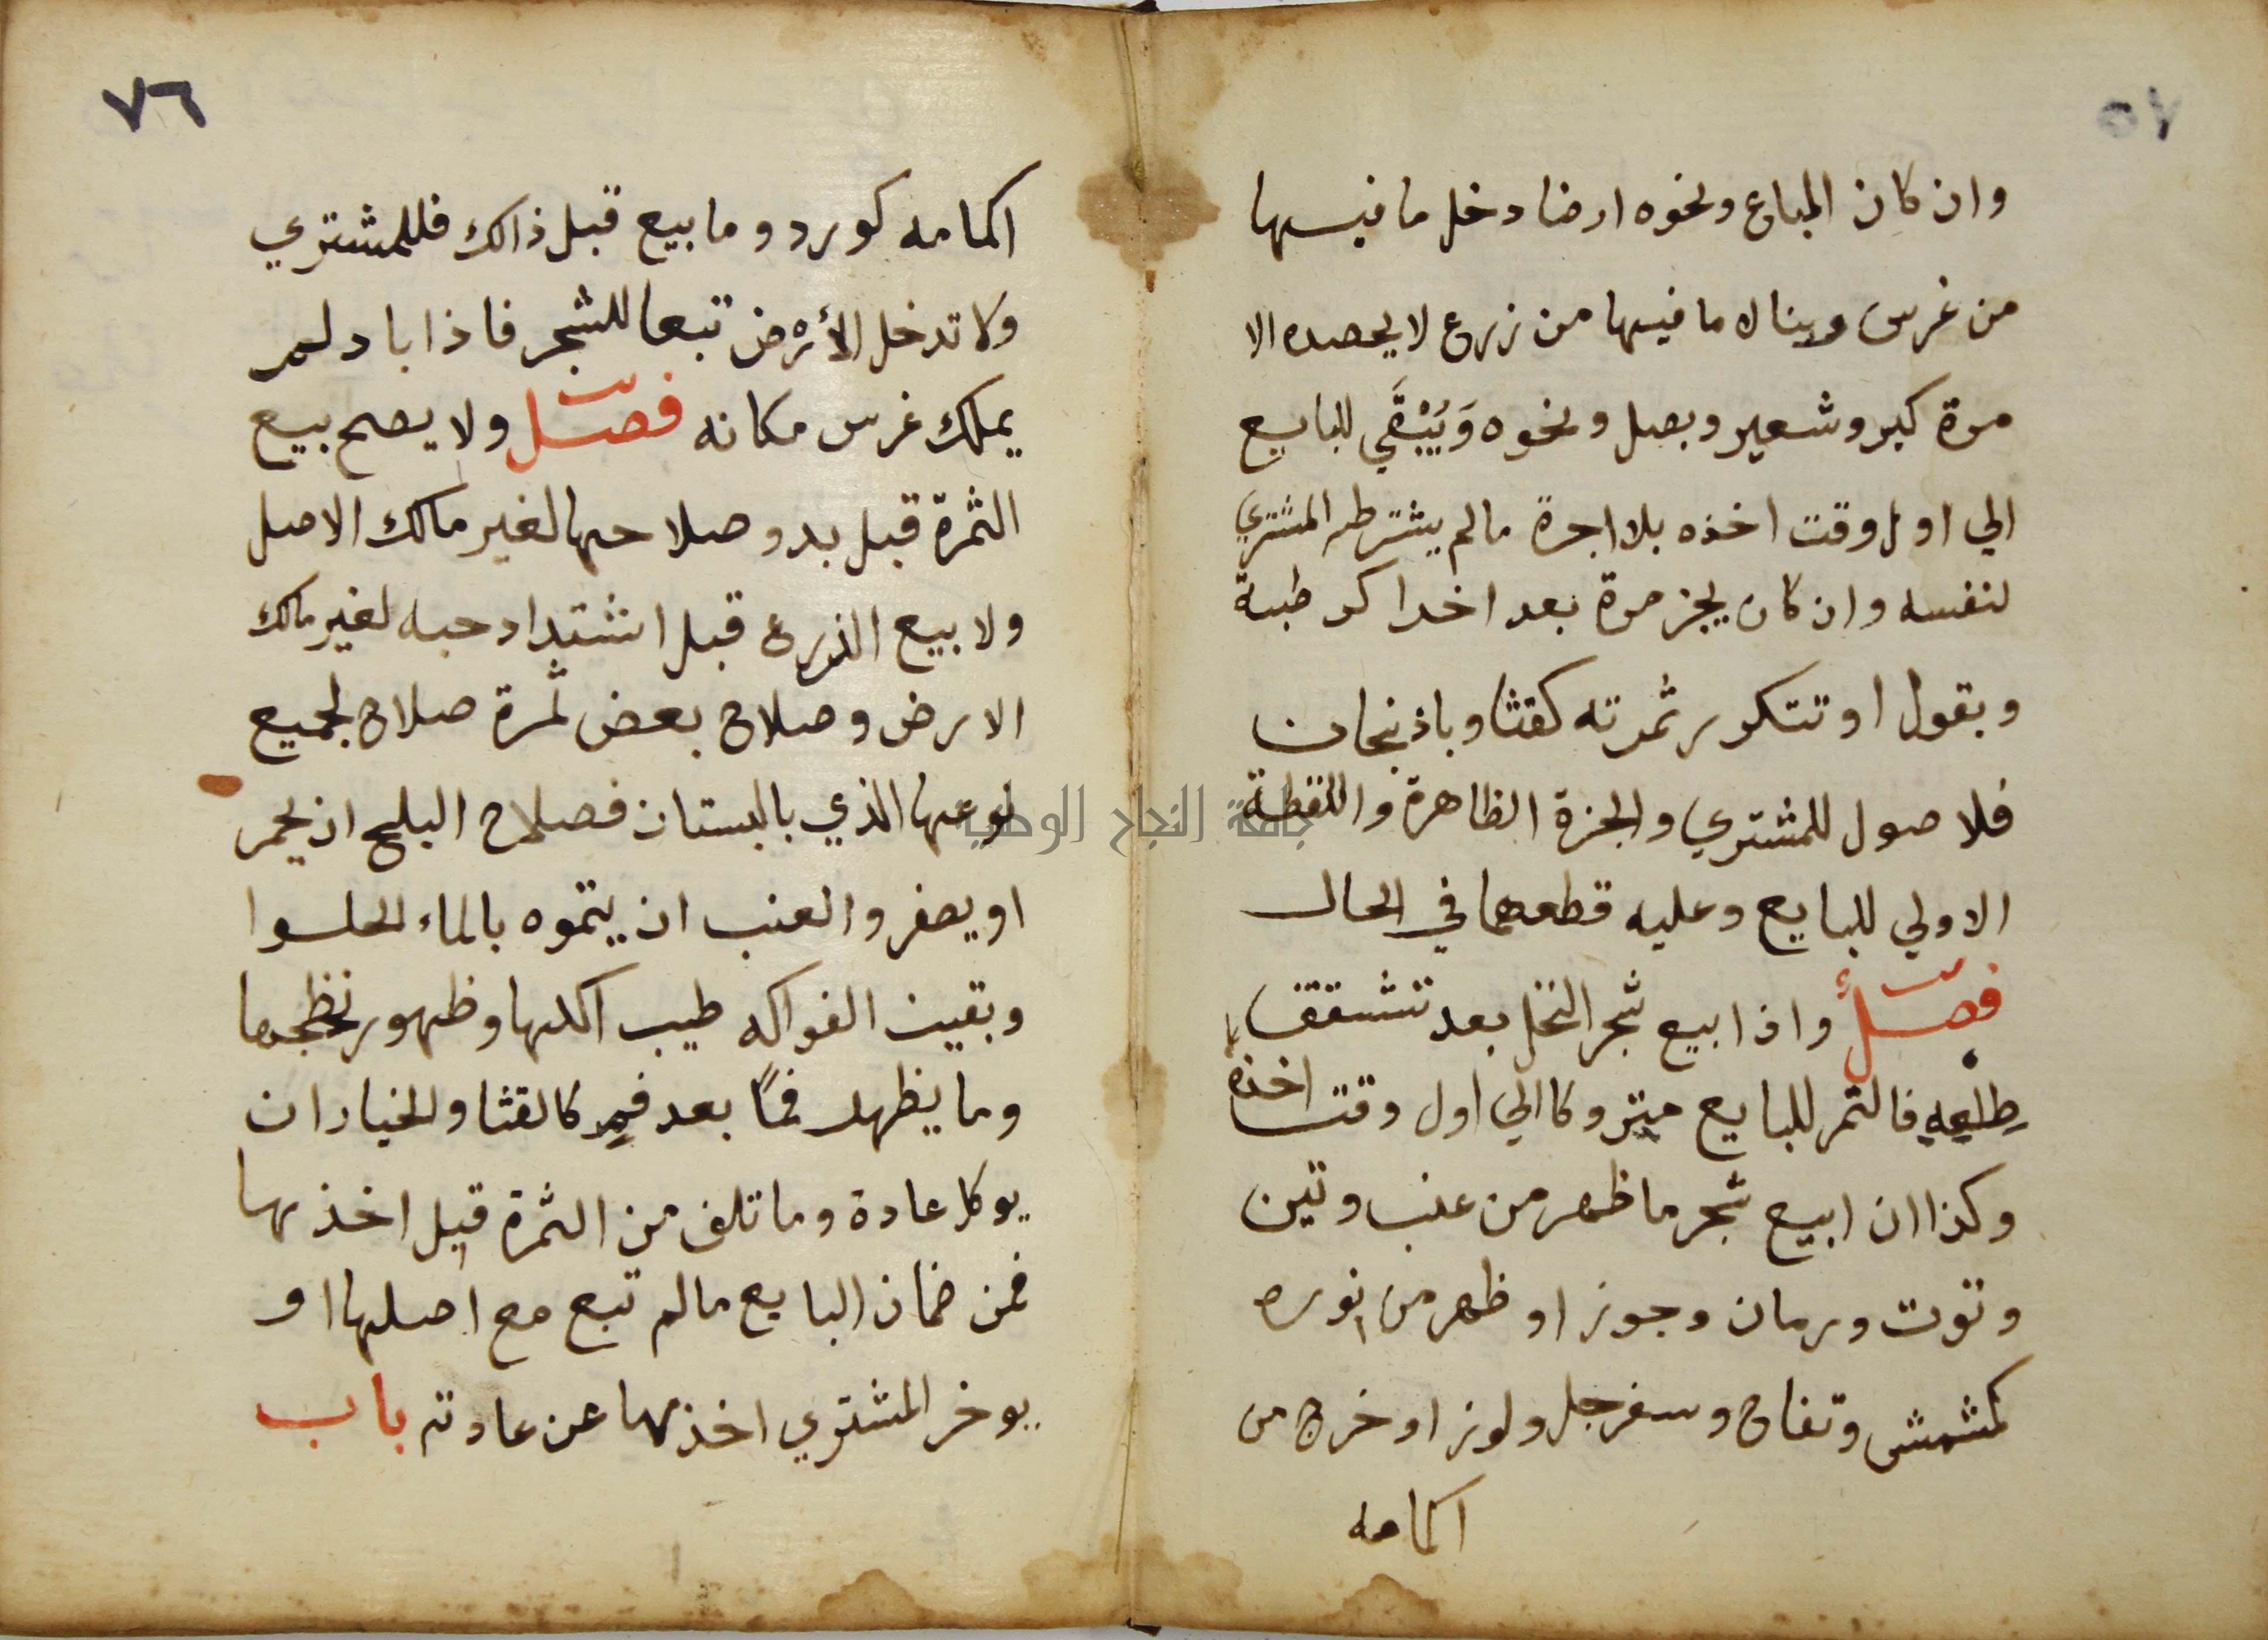 ٧٥
وان كان المباع ونحوه ارضا دخل ما فيسها
من غرس وبنا لا ما فيها من زرع لا يحصده الا
مرة كبر وشعير وبصل ونحوه وَيُبْقَي للبايع
الي اول وقت اخذه بلا اجرة مالم يشترطه المشتري
لنفسه وان كان يجز مرة بعد اخرا كرطبة
وبقول او تتكرر ثمرته كقثا وباذنجان
فلاصول للمشتري والجزة الظاهرة واللقطة
الاولي للبايع وعليه قطعهما في الحال
فصل واذا بيع شجر النخل بعد تشقق
طلعه فالتمر للبايع متروكا الي اول وقت اخذه
وكذا ان ابيع شجر ما ظهر من عنب وتين
وتوت ورمان وجوز او ظهر من نوره
كمشمش وتفاح وسفرجل ولوز او خرج من
اكمامه
٧٦
اكمامه كورد وما بيع قبل ذالك فللمشتري
ولا تدخل الأرض تبعا للشجر فاذا باد لم
يملك غرس مكانه فصل ولا يصح بيع
الثمرة قبل بدو صلاحها لغير مالك الاصل
ولا بيع الزرع قبل اشتداد حبه لغير مالك
الارض وصلاح بعض ثمرة صلاح لجميع
نوعها الذي بالبستان فصلاح البلح ان يحمر
او يصفر والعنب ان يتموه بالماء الحلوا
وبقيت الفواكه طيب اكلها وظهور نضجها
وما يظهر فمًا بعد فم كالقثا والخيار ان
يوكل عادة وما تلف من الثمرة قبل اخذها
فمن ضمان البايع مالم تبع مع اصلها او
يوخر المشتري اخذها عن عادته باب
جامعة النجاح الوطنية